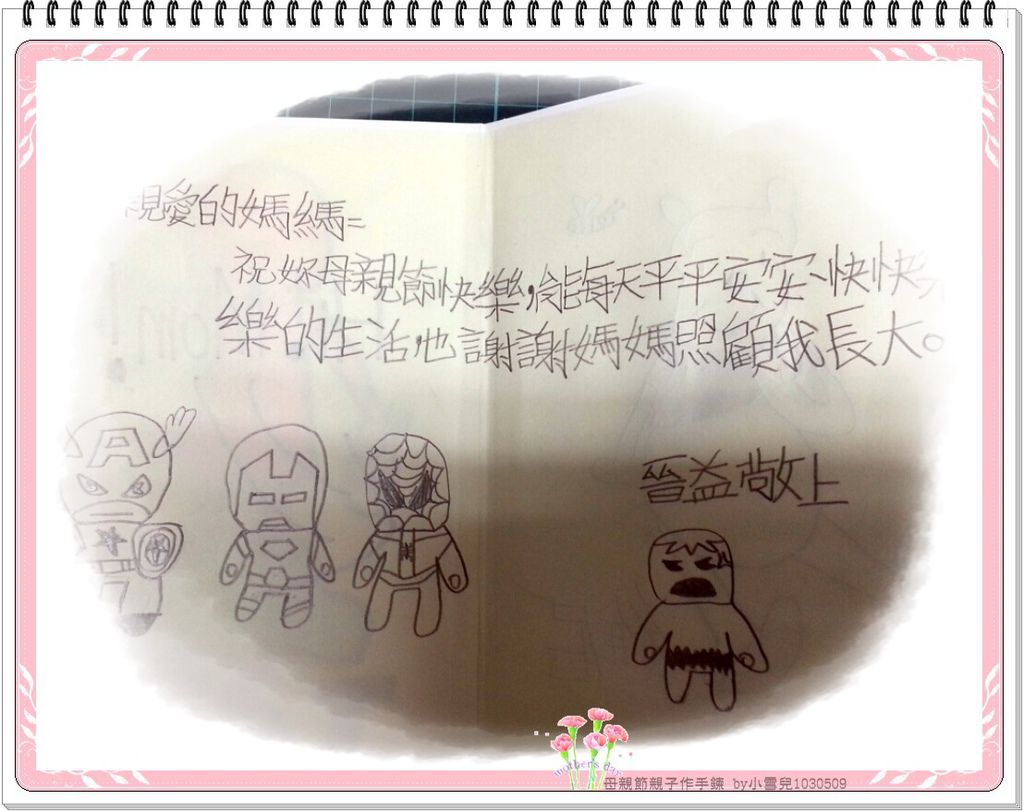 親愛的媽媽=
祝妳母親節快樂,能每天平平安安、快快
樂的生活,也謝謝媽媽照顧我長大。
晉益敬上
A
mother's day
母親節親子作手鍊 by小雪兒1030509